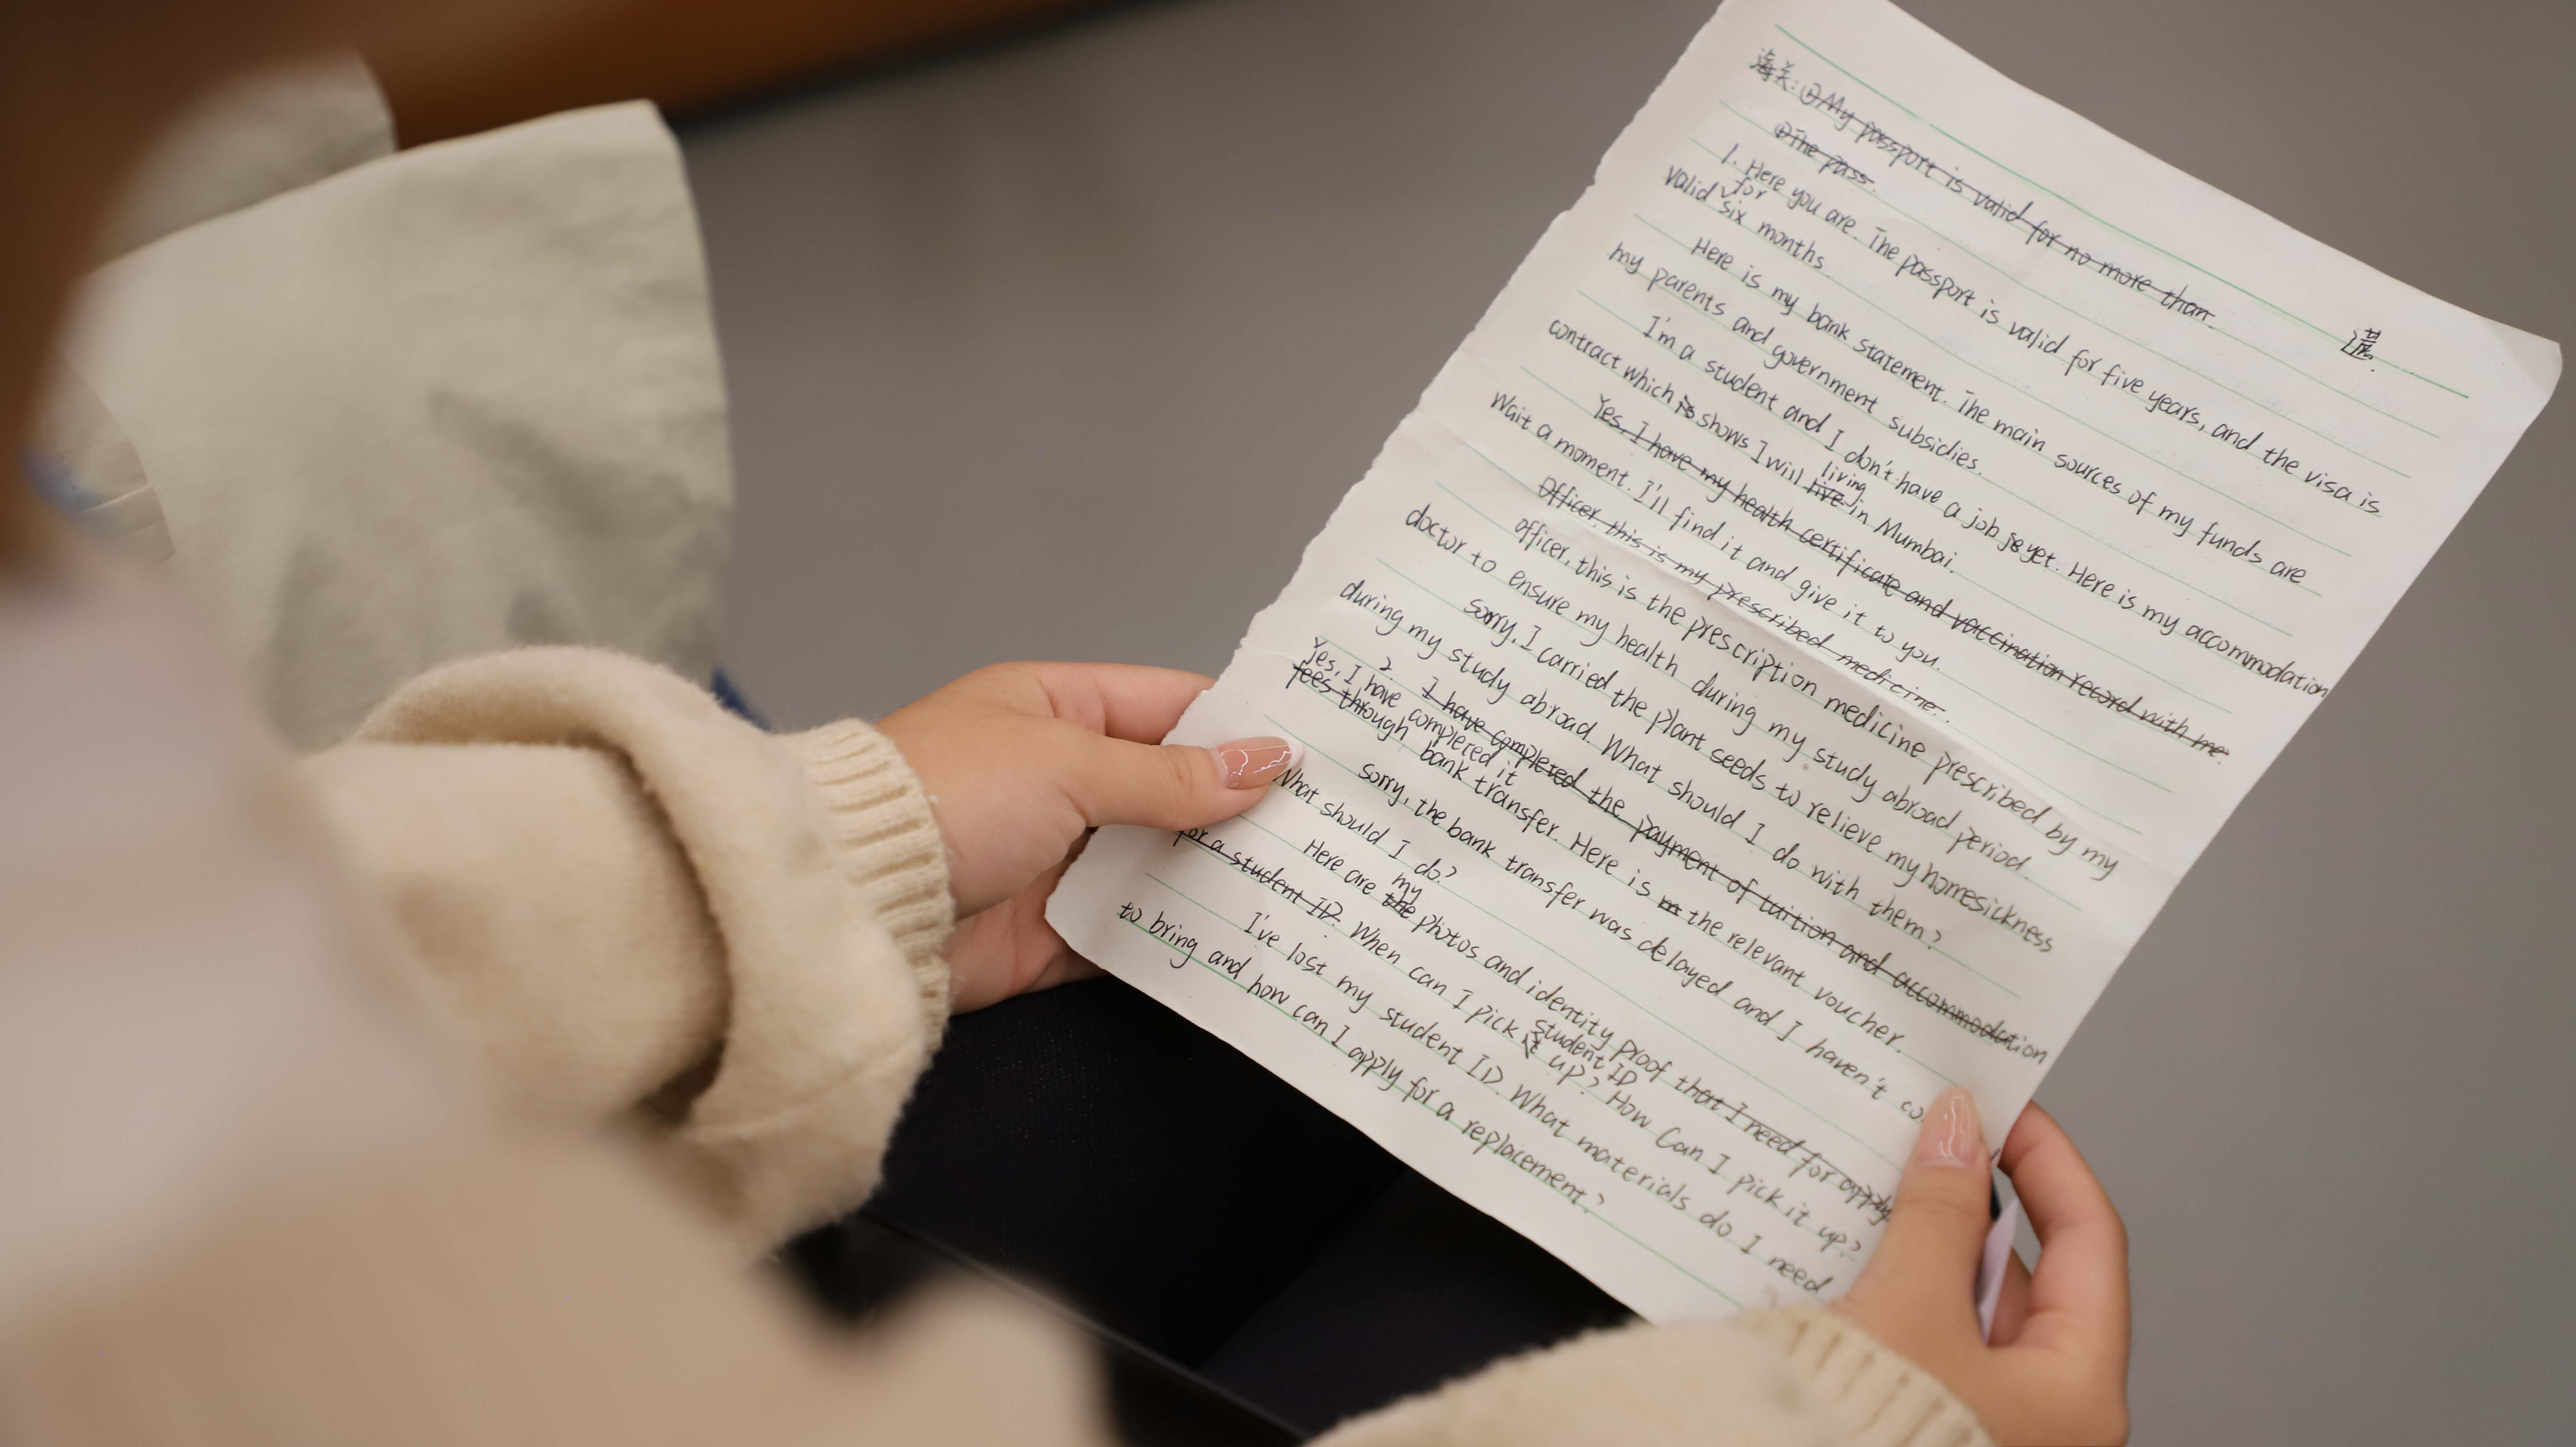 海关: ①My passport is valid for no more than.
①The pass.
1. Here you are. The passport is valid for five years, and the visa is
for
valid six months.
Here is my bank statement. The main sources of my funds are
my parents and government subsidies.
I'm a student and I don't have a job yet. Here is my accommodation
living
contract which is shows I will live in Mumbai.
Yes, I have my health certificate and vaccination record with me.
Wait a moment. I'll find it and give it to you.
Officer, this is my prescribed medicine.
officer, this is the prescription medicine prescribed by my
doctor to ensure my health during my study abroad period.
Sorry, I carried the plant seeds to relieve my homesickness
during my study abroad. What should I do with them?
2. I have completed the payment of tuition and accommodation
Yes, I have completed it
fees through bank transfer. Here is the relevant voucher.
Sorry, the bank transfer was delayed and I haven't
What should I do?
my
Here are the photos and identity proof that I need for apply
student ID
for a student ID. When can I pick it up? How Can I pick it up?
I've lost my student ID. What materials do I need
to bring and how can I apply for a replacement?